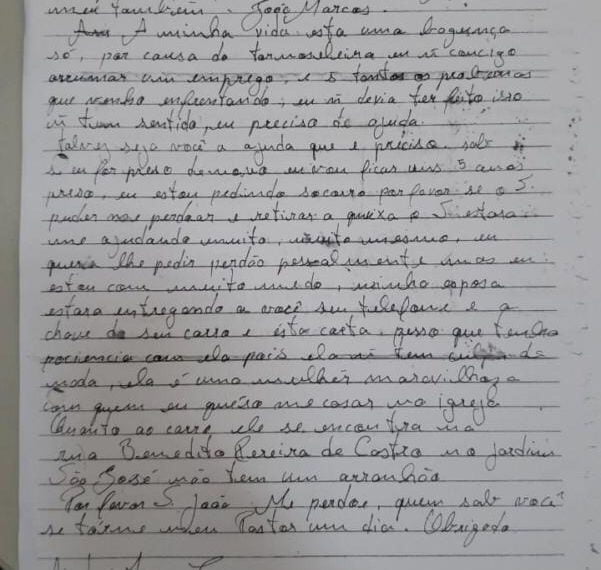 meu também. João Marcos.
A minha vida esta uma bagunça
só, por causa da tornoseleira eu ñ concigo
arrumar um emprego, e s tantos os problemas
que venho enfrentando, eu ñ devia ter feito isso
ñ tem sentido, eu preciso de ajuda.
Talvez seja você a ajuda que e preciso. sabe
s eu for preso denovo eu vou ficar uns 5 anos
preso, eu estou pedindo socorro por favor se o S.
puder me perdoar e retirar a queixa o S. estara
me ajudando muito, muito mesmo, eu
queria lhe pedir perdão pessoalmente mas eu
estou com muito medo, minha esposa
estara entregando a você seu telefone e a
chave do seu carro e esta carta. peço que tenha
paciencia com ela pois ela ñ tem culpa de
nada, ela é uma mulher maravilhoza
com quem eu quero me casar na igreja
Quanto ao carro ele se encontra na
rua Benedito Pereira de Castro no jardim
São José não tem um arranhão
Por favor S. João Me perdoe, quem sabe você
se torne meu Pastor um dia. Obrigado